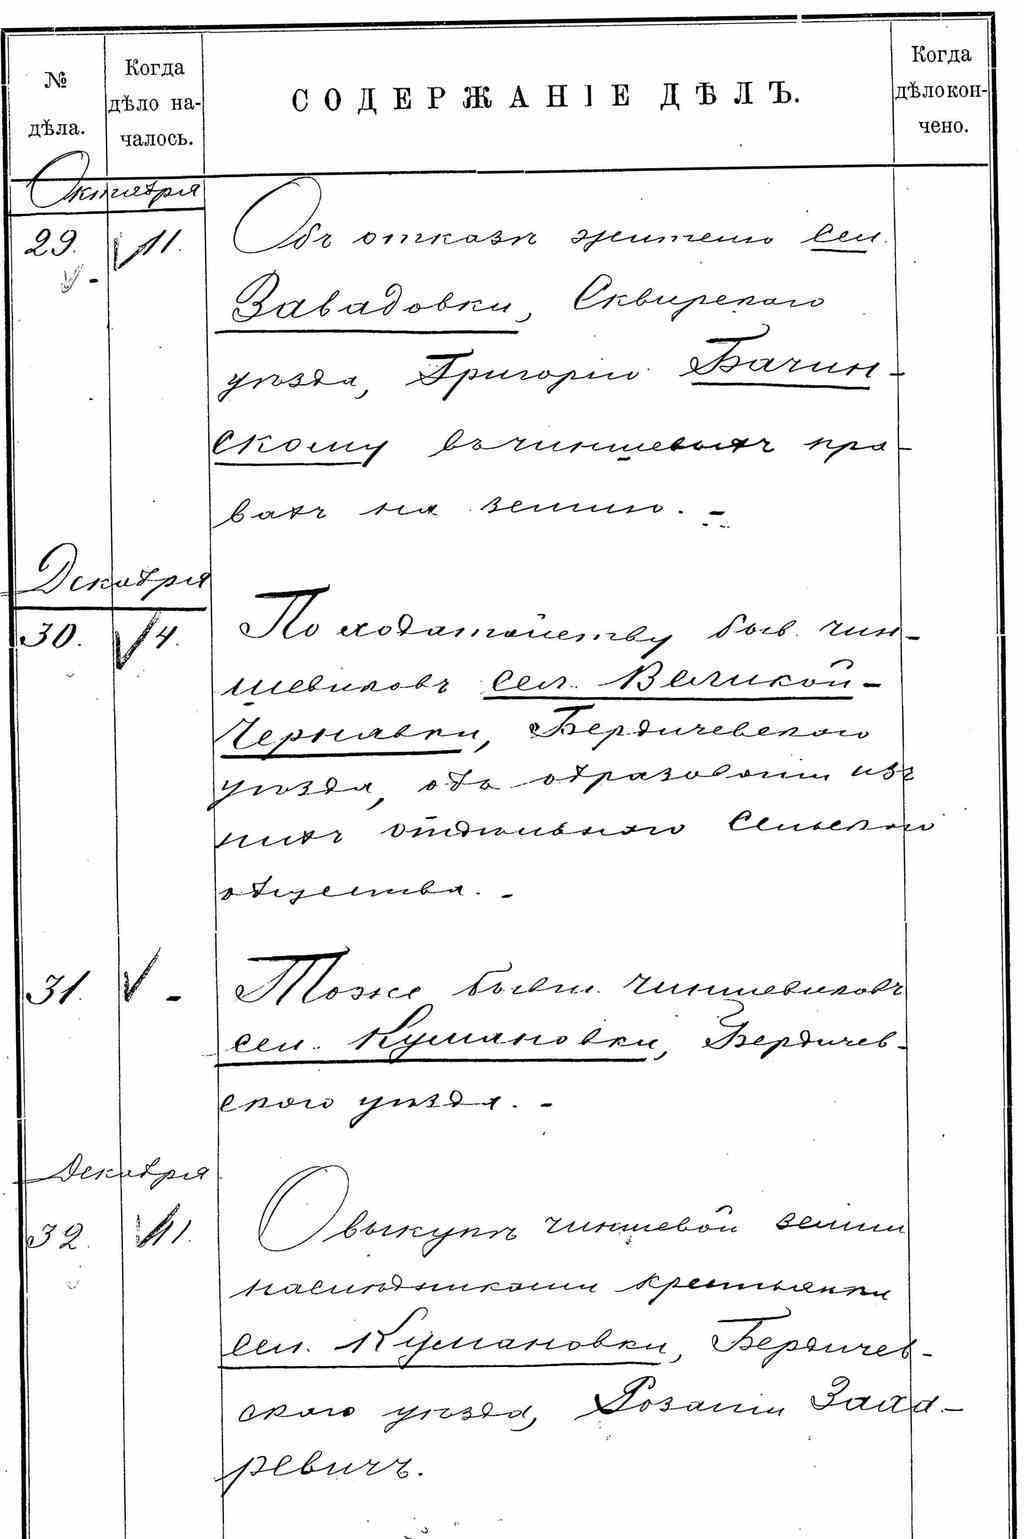 № дѣла.
Когда дѣло на-чалось.
СОДЕРЖАНІЕ ДѢЛЪ.
Когда дѣло кон-чено.
Октября
29. 11. Объ отказѣ жителю сел.
Завадовки, Сквирскаго
уѣзда, Григорію Бачин-
скому въ чиншевыхъ пра-
вахъ на землю. -
Декабря
30. 4. По ходатайству быв. чин-
шевиковъ сел. Великой-
Чернявки, Бердичевскаго
уѣзда, объ образованіи изъ
нихъ отдѣльнаго сельскаго
общества. -
31. - Тоже бывш. чиншевиковъ
сел. Кумановки, Бердичев-
скаго уѣзда. -
Декабря
32. 11. О выкупѣ чиншевой земли
наслѣдниками крестьянки
сел. Кумановки, Бердичев-
скаго уѣзда, Розаліи Заха-
ревичъ.